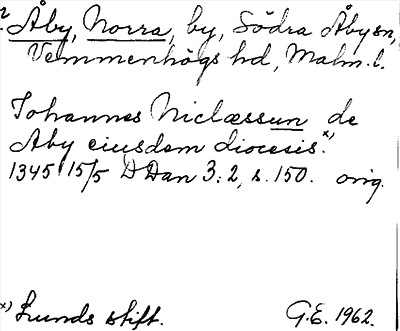 2 Åby, Norra, by, Södra Åby sn,
Vemmenhögs hd, Malm. l.
Johannes Niclæssun de
Aby eiusdem diocesis. x)
1345 15/5 DDan 3:2, s. 150. orig.
x) Lunds stift. G.E. 1962.